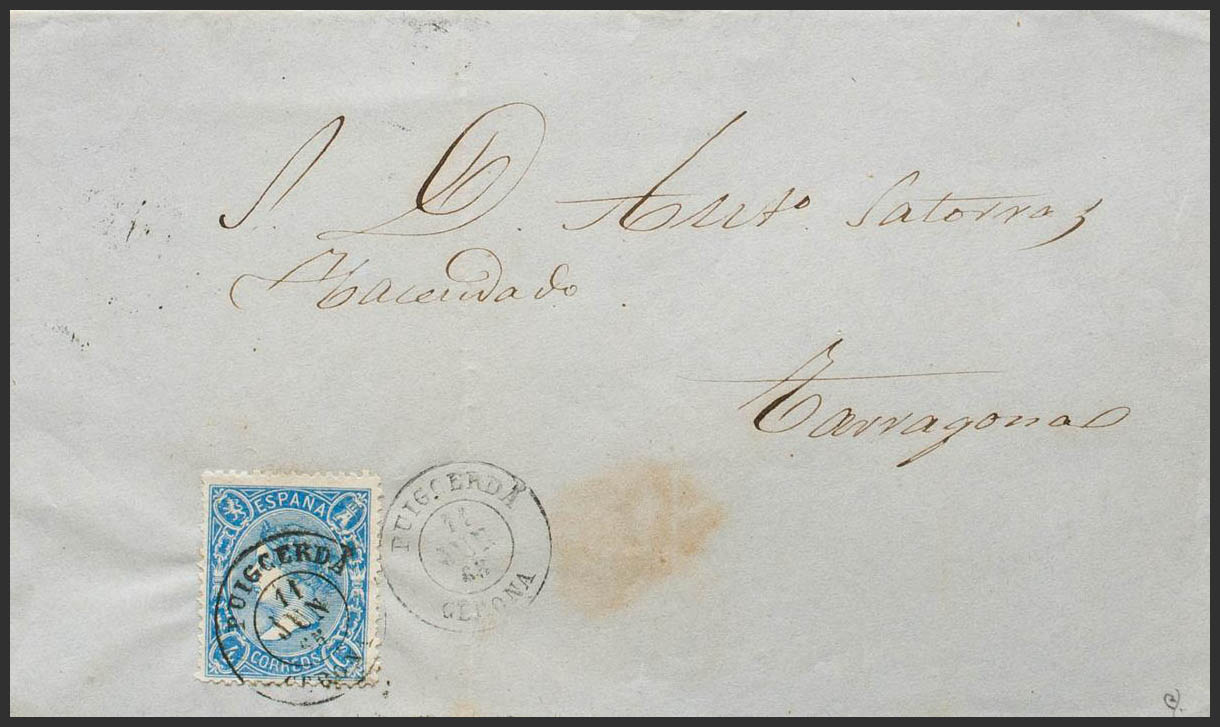 S. D. Antº Satorras
Hacendado.
Tarragona
ESPAÑA
CORREOS
PUIGCERDÁ
11
JUN
GERONA
PUIGCERDÁ
11
JUN
65
GERONA